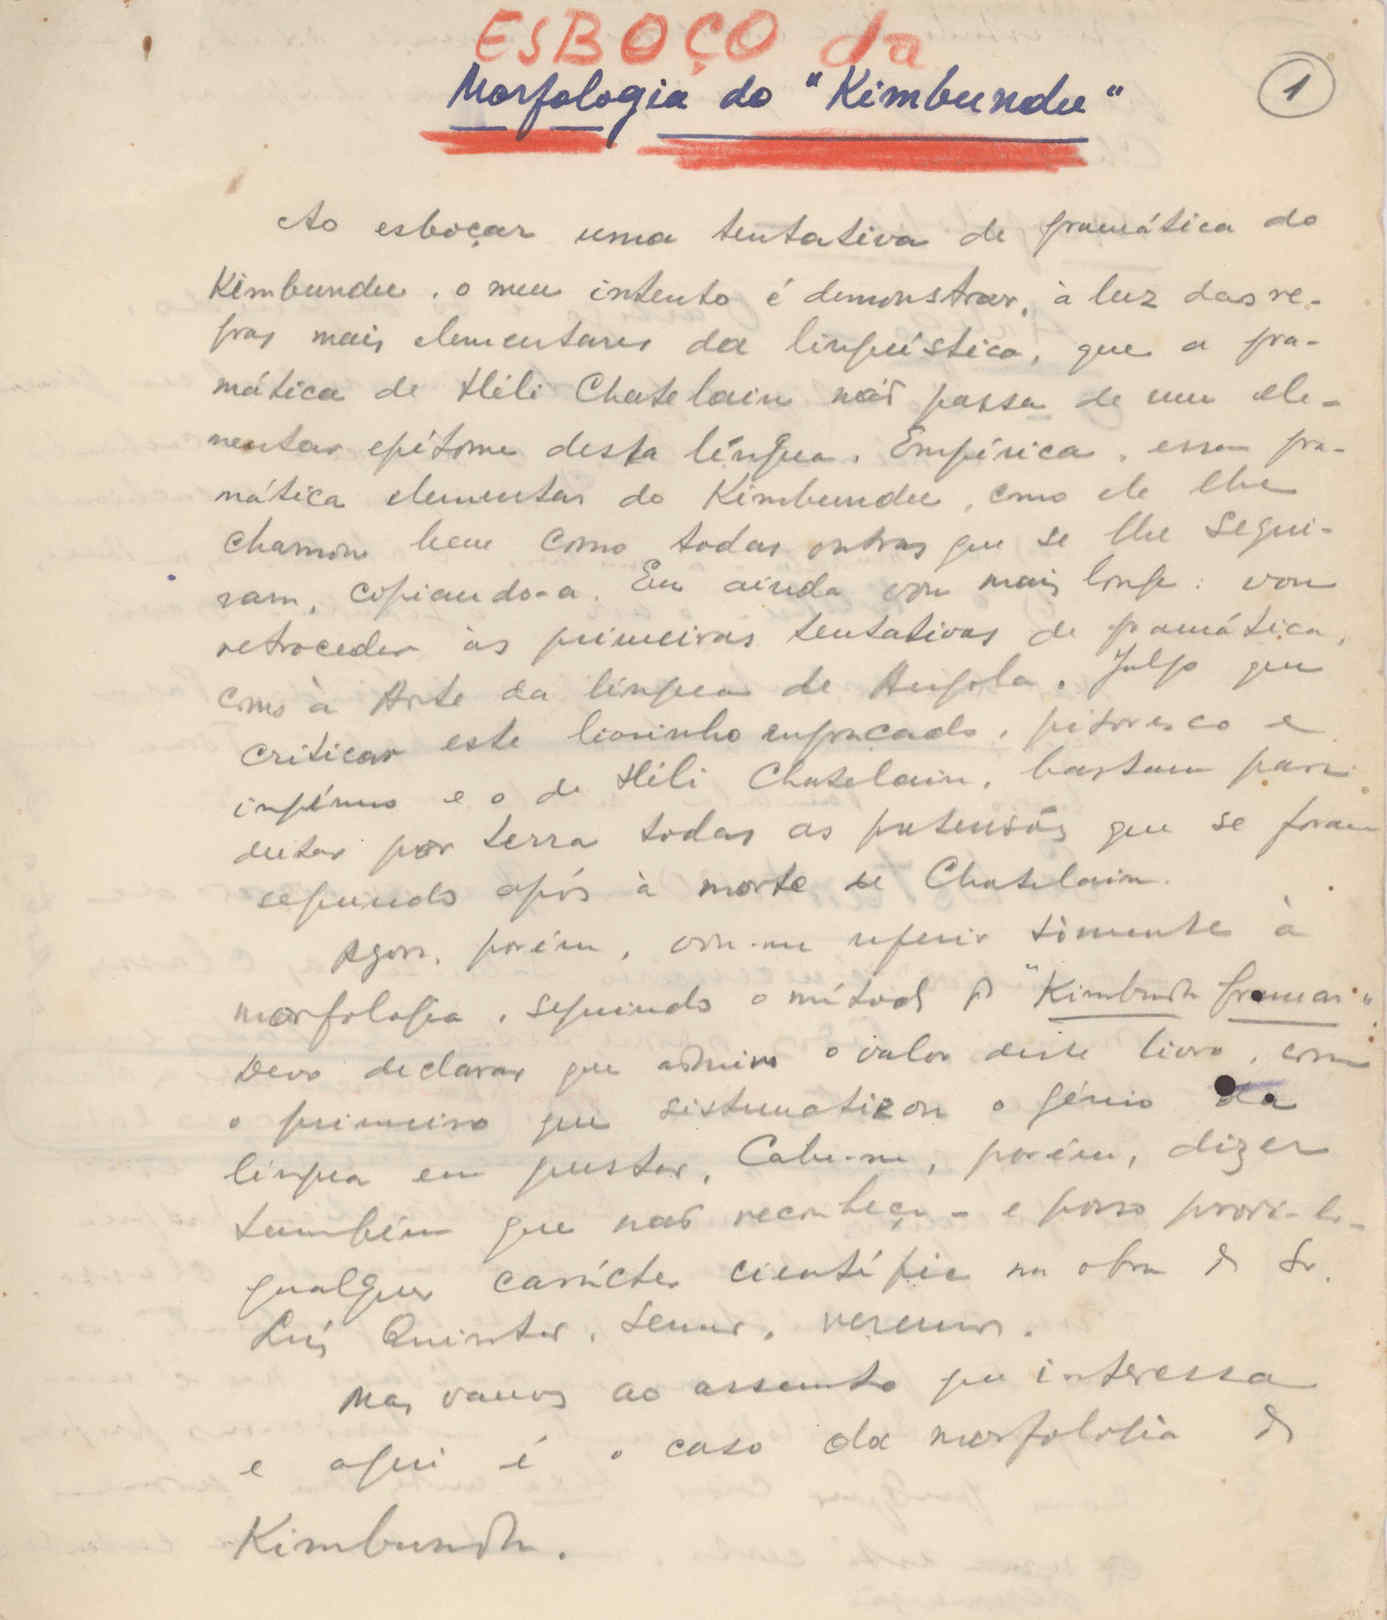 ESBOÇO da
Morfologia do "Kimbundu"
1
Ao esboçar uma tentativa de gramática do
Kimbundu, o meu intento é demonstrar, à luz das re-
gras mais elementares da linguística, que a gra-
mática de Héli Chatelain não passa de um ele-
mentar epítome desta língua. Empírica, essa gra-
mática elementar do Kimbundu, como ele lhe
chamou bem como todas outras que se lhe segui-
ram, copiando-a. Eu ainda vou mais longe: vou
retroceder às primeiras tentativas de gramática,
como à Arte da língua de Angola. Julgo que
criticar este livrinho engraçado, pitoresco e
ingénuo e o de Héli Chatelain, bastam para
deitar por terra todas as pretensões que se foram
seguindo após à morte de Chatelain.
Agora, porém, vou-me referir sòmente à
morfologia, seguindo o método do "Kimbundu Gramar"
Devo declarar que admiro o valor deste livro, como
o primeiro que sistematizou o génio da
língua em questão. Cabe-me, porém, dizer
também que não reconheço - e posso prová-lo -
qualquer carácter científico na obra do Sr.
Luís Quintas. Senão, veremos.
Mas vamos ao assunto que interessa
e aqui é o caso da morfologia do
Kimbundu.